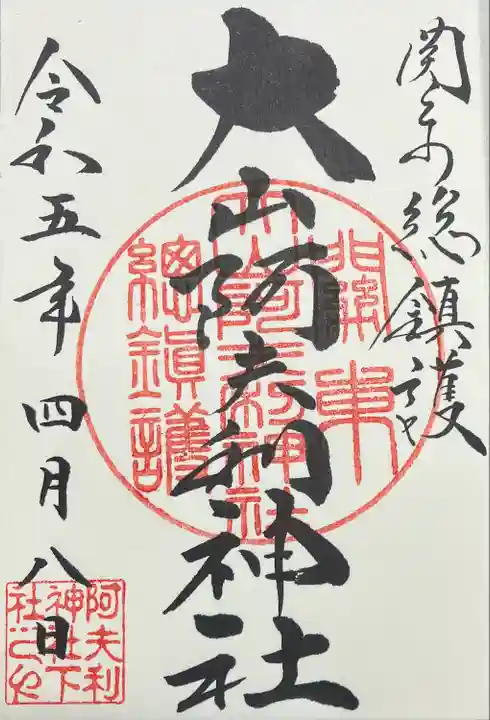 関東総鎮護
大山阿夫利神社
令和五年四月八日
關東
大山阿夫利神社
總鎭護
阿夫利
神社下
社